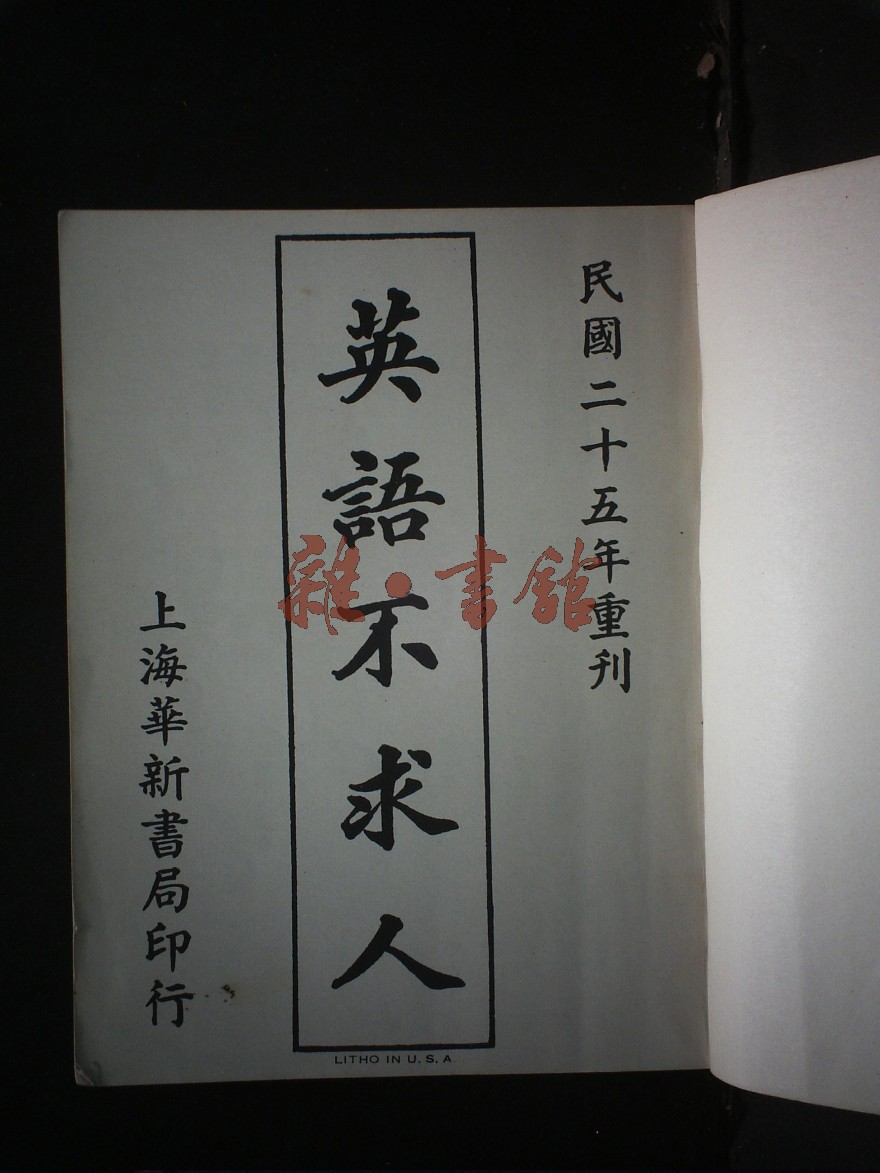 民國二十五年重刊
英語不求人
上海華新書局印行
LITHO IN U.S.A
雜·書館